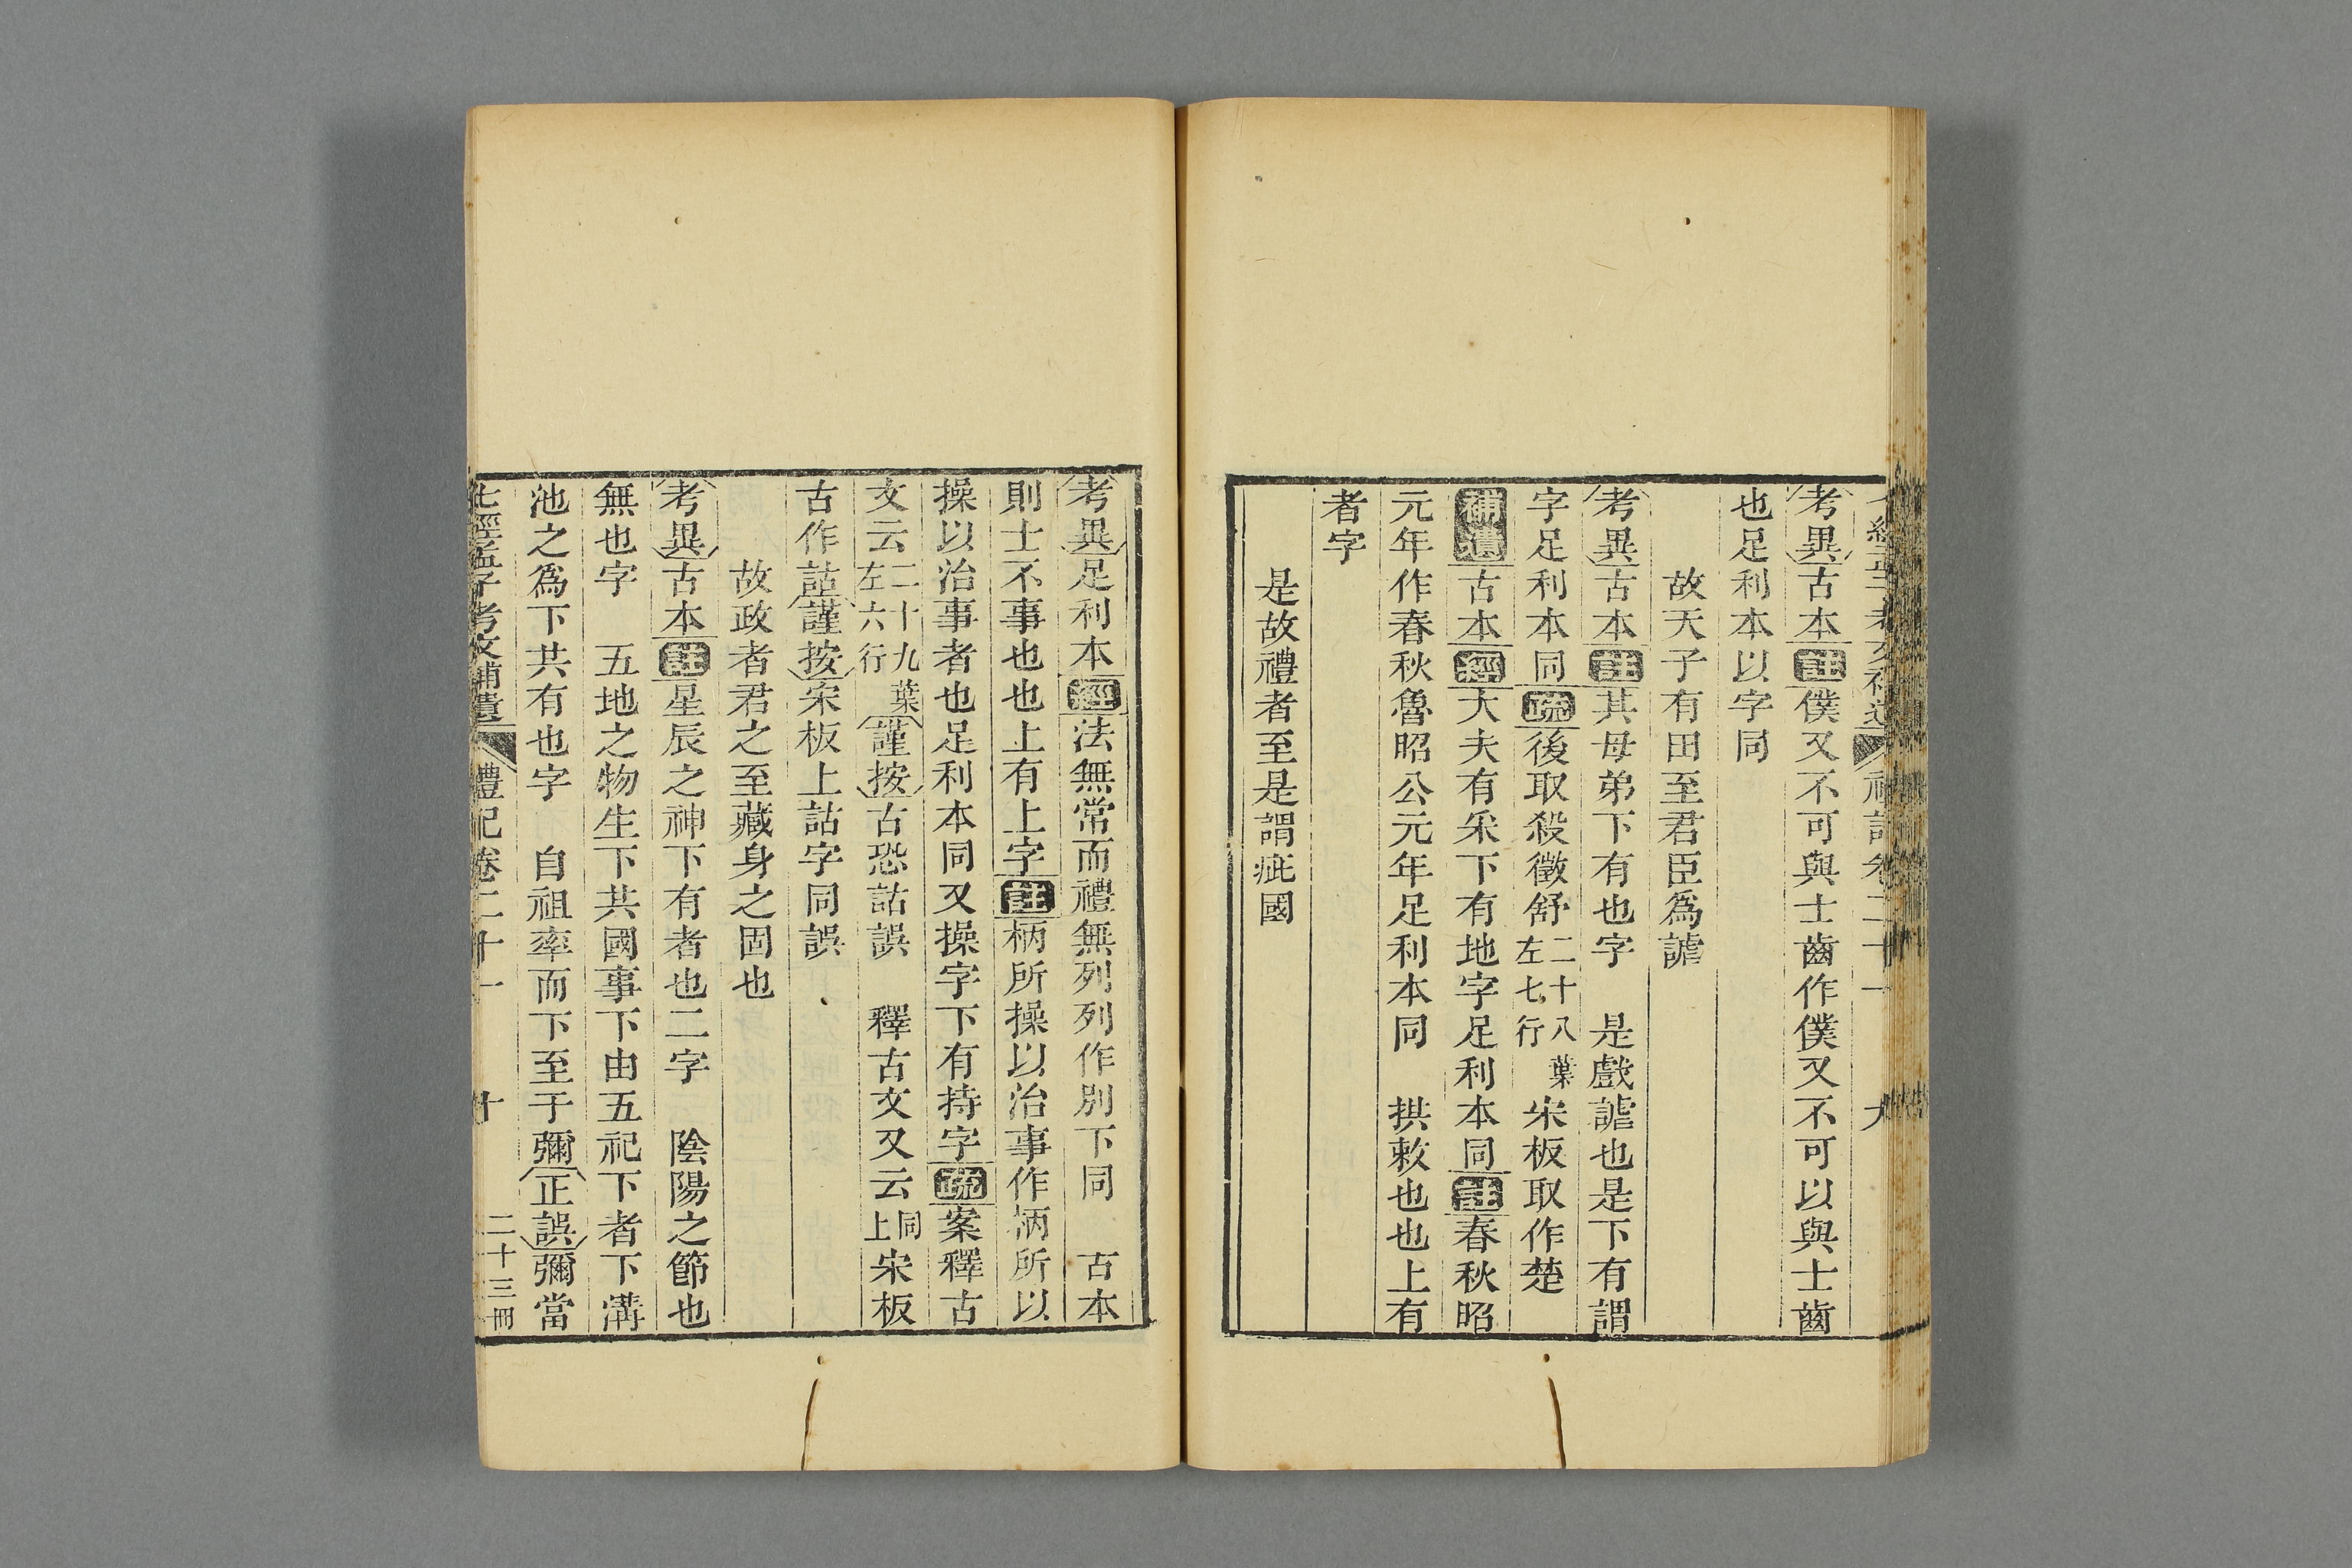 考異古本註僕又不可與士齒作僕又不可以與士齒
也足利本以字同
故天子有田至君臣爲謔
考異古本註其母弟下有也字 是戲謔也是下有謂
字足利本同疏後取殺徵舒二十八葉左七行宋板取作楚
補遺古本經大夫有采下有地字足利本同註春秋昭
元年作春秋魯昭公元年足利本同 拱敕也也上有
者字
是故禮者至是謂疵國
考異足利本經法無常而禮無列列作別下同 古本
則士不事也也上有上字註柄所操以治事作柄所以
操以治事者也足利本同又操字下有持字疏案釋古
文云二十九葉左六行謹按古恐詁誤 釋古文又云同上宋板
古作詁謹按宋板上詁字同誤
故政者君之至藏身之固也
考異古本註星辰之神下有者也二字 陰陽之節也
無也字 五地之物生下共國事下由五祀下者下溝
池之爲下共有也字 自祖率而下至于彌正誤彌當
七經孟子考文補遺 禮記卷二十一 十 二十三冊